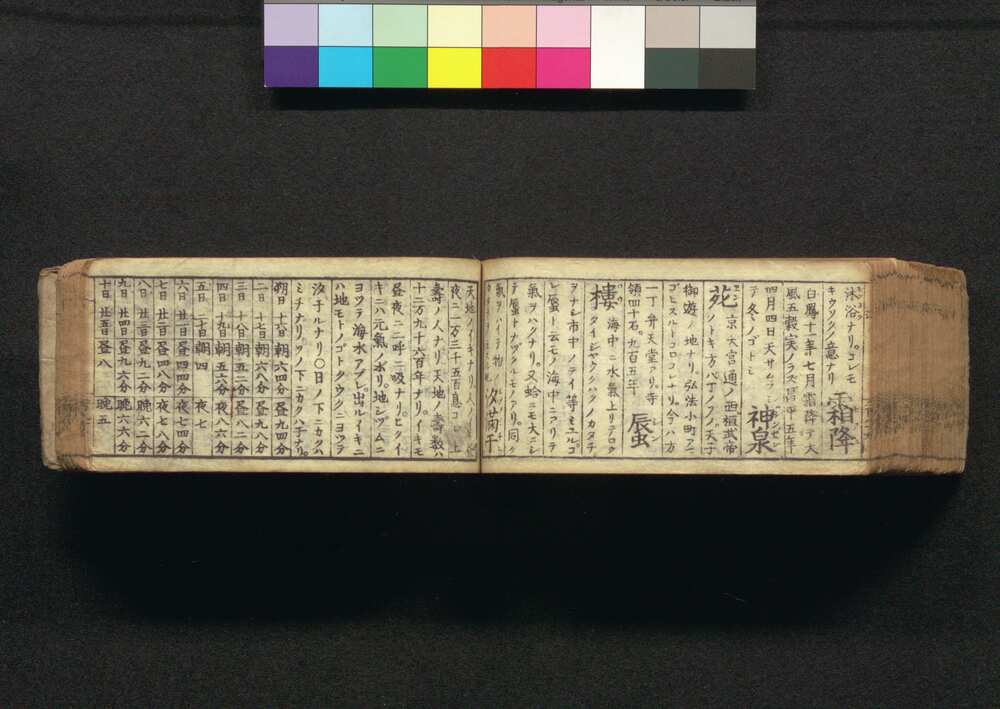 沐浴ナリ。コレモ
キウリクノ意ナリ 霜降
白鳳十二年七月霜降テ大
風五穀実ノラズ
四月四日天サムフ
テ冬ノゴトシ 神泉
苑 京大宮通ノ西桓武帝
ノトキ方八丁ノソノ天子
御遊ノ地ナリ。弘法小町アマ
ゴヒスルトコロコレナリ。今ハ方
一丁弁天堂アリ。寺
領四十石。九百五年 蜃
樓 海中ニ水氣上リテロウ
タイジヤウクワクノカタチ
ヲナシ市中ノテイ等ミユル。ゴ
レ蜃ト云モノ海中ニアリテ
氣ヲハクナリ。又蛤ニモ大ニシ
テ蜃トナヅクルモノアリ。同ク
氣ヲハイテ物ノ
汐満干
天地ノイキナリ人ノ
夜ニ一万三千五百息コレ上
壽ノ人ナリ天地ノ壽数ハ
十二万九千六百年ナリ。イキモ
昼夜ニ二呼二吸ナリ。ヒクイ
キニハ元氣ノボリ。地シヅムニ
ヨツテ海水アフレ出ルイキニ
ハ地モトノゴトクウクニヨツテ
汐干ルナリ〇日ノ下ニカクハ
ミチナリ。ソノ下ニカクハヒナリ。
朔日 十六日 朝六四分 昼九四分
二日 十七日 朝六八分 昼九八分
三日 十八日 朝五二分 昼八二分
四日 十九日 朝五六分 夜八六分
五日 二十日 朝四 夜七
六日 廿一日 昼四四分 夜七四分
七日 廿二日 昼四八分 夜七八分
八日 廿三日 昼九二分 晩六二分
九日 廿四日 昼九六分 晩六六分
十日 廿五日 昼八 晩五